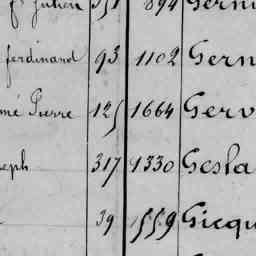 fs Julien 351 894 Gerni
ferdinand 93 1102 Gern
mé Pierre 125 1664 Gerv
seph 317 1330 Gesla
39 1559 Gicqu